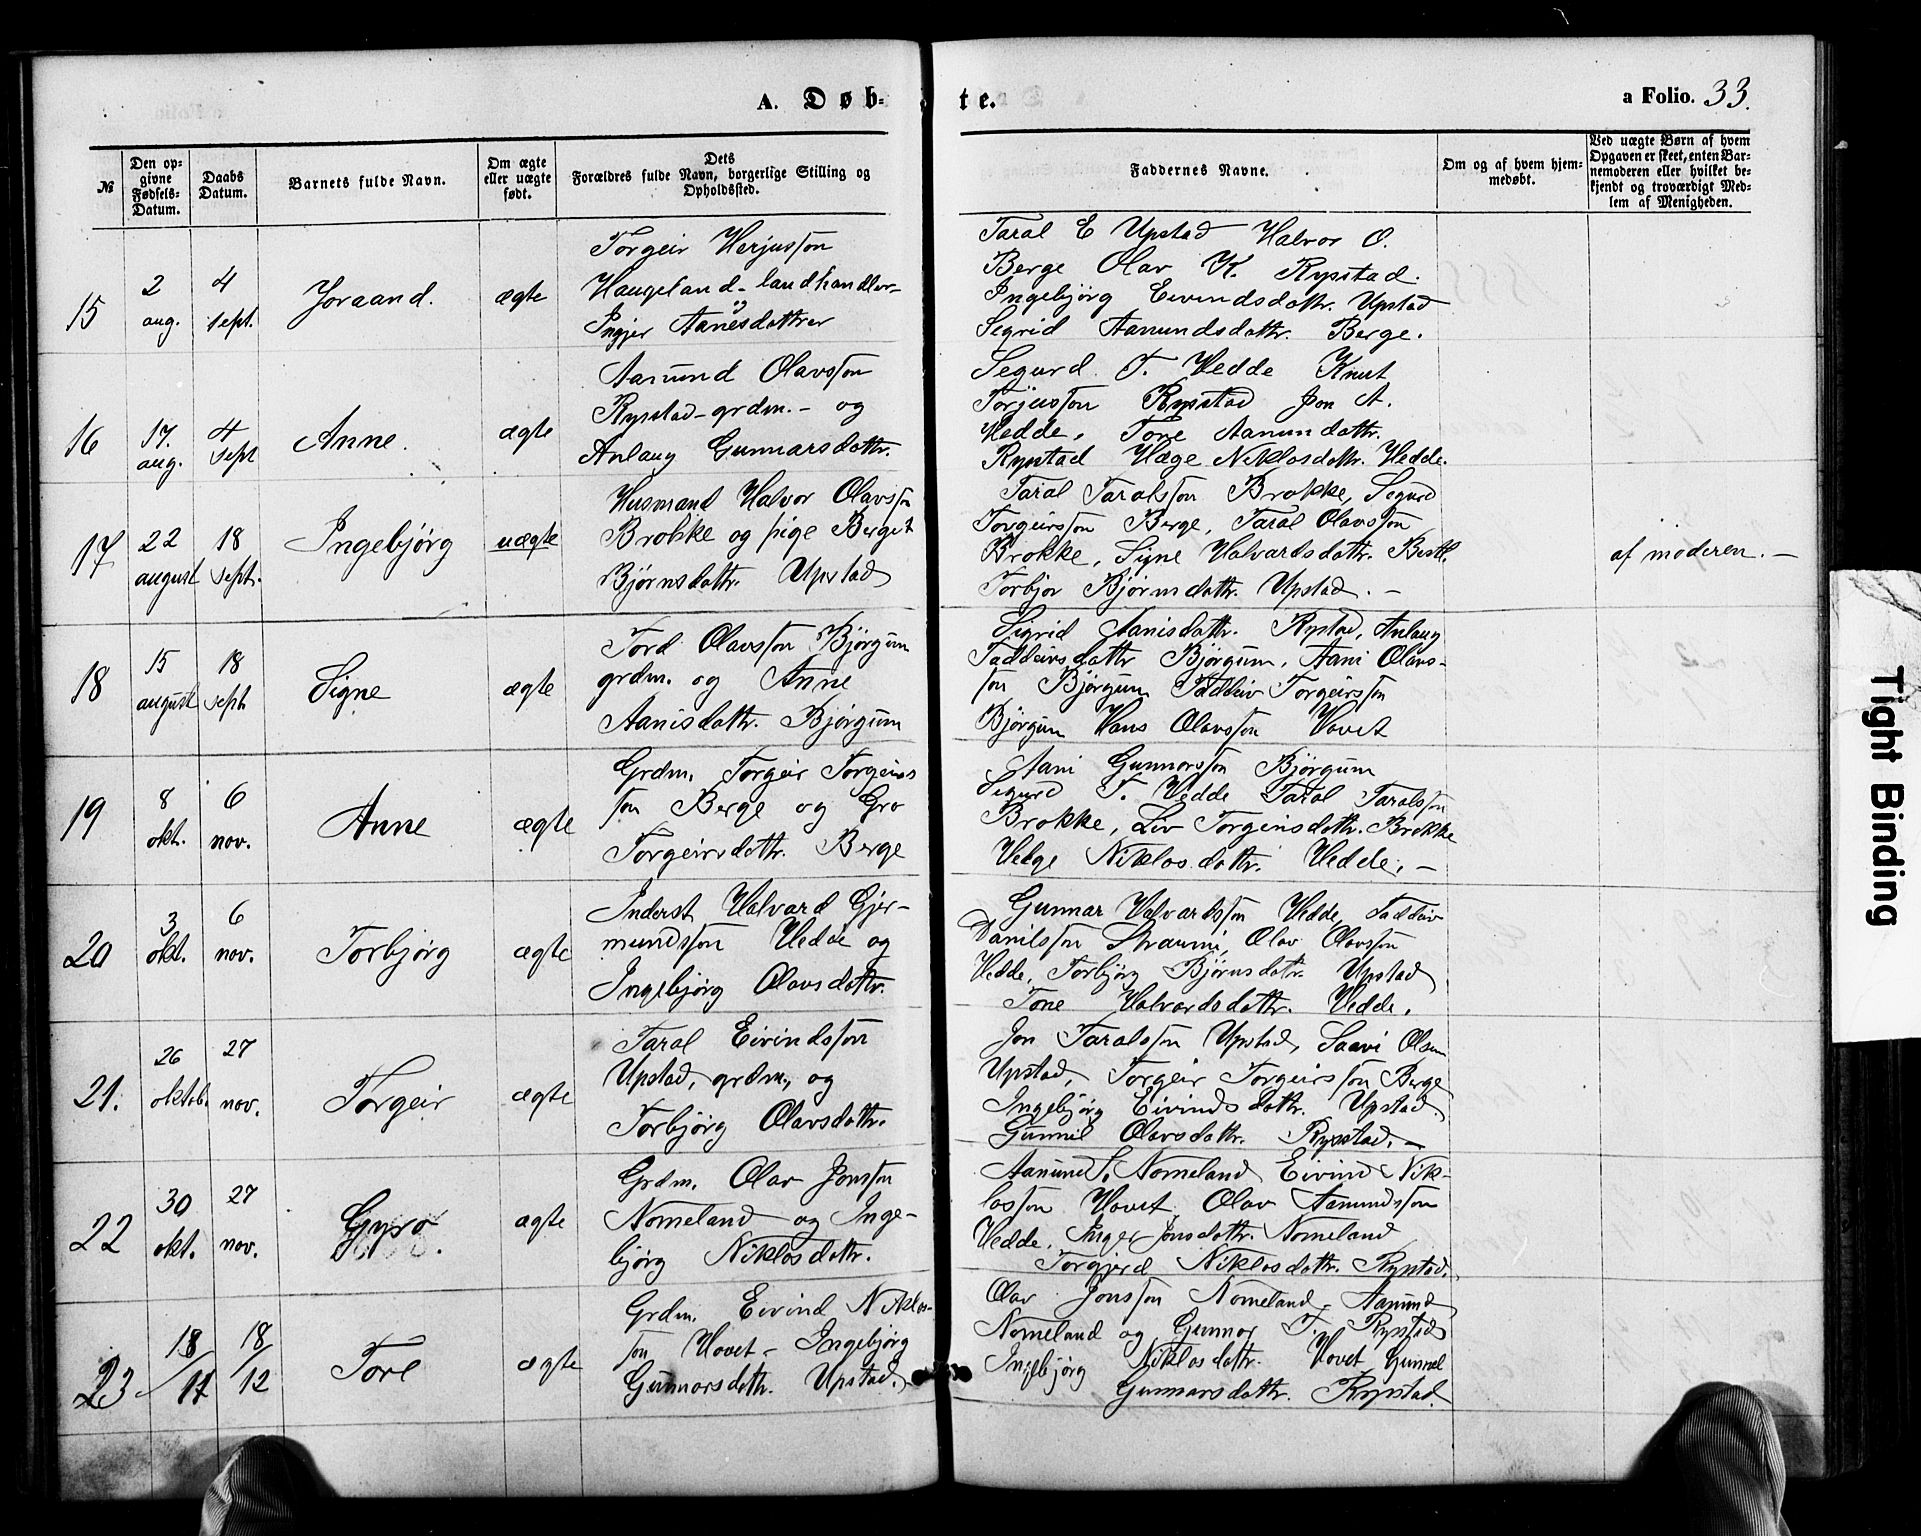 A. Døb-
te.
a Folio. 33.
№
Den op-
givne
Fødsels-
Datum.
Daabs
Datum.
Barnets fulde Navn.
Om ægte
eller uægte
født.
Dets
Forældres fulde Navn, borgerlige Stilling og
Opholdssted.
Faddernes Navne.
Om og af hvem hjem-
medøbt.
Ved uægte Børn af hvem
Opgaven er skeet, enten Bar-
nemoderen eller hvilket be-
kjendt og troværdigt Med-
lem af Menigheden.
15
2
aug.
4
sept.
Joraand.
ægte
Torgeir Herjusson
Haugeland - landhandler -
Ingjer Aanesdatter
Taral E Upstad Halvor O.
Berge Olav K. Rysstad.
Ingebjörg Eivindsdottr. Upstad
Segrid Aamundsdottr. Berge.
16
17.
aug.
4
sept
Anne.
ægte
Aamund Olavsson
Rysstad - grdm. - og
Anlaug Gunnarsdottr.
Segurd T. Hedde Knut
Torjusson Rysstad Jon A.
Hedde, Tone Aamundsdottr.
Rysstad Hæge Niklosdottr. Hedde.
17
22
august
18
sept.
Ingebjörg
uægte
Husmand Halvor Olavsson
Brokke og pige Berget
Bjørnsdottr. Upstad
Taral Taralsson Brokke, Segurd
Torgeirsson Berge, Taral Olavsson
Brokke, Signe Halvardsdottr. Brokke
Torbjor Bjørnsdottr. Upstad. -
af moderen. -
18
15
august
18
sept
Signe
ægte
Tord Olavsson Bjørgum
grdm. og Anne
Aanisdottr. Bjørgum
Sigrid Aanisdottr. Rystad, Anlaug
Taddeivsdottr Bjørgum, Aani Olavs-
son Bjørgum Taddeiv Torgeirsson
Bjørgum Hans Olavsson Hovet
19
8
okt.
6
nov.
Anne
ægte
Grdm. Torgeir Torgeirs
son Berge og Gro
Torgeirsdottr. Berge
Aani Gunnarsson Bjørgum
Segurd T. Hedde Taral Taralsson
Brokke, Liv Torgeirsdottr. Brokke
Helge Niklosdottr. Hedde. -
20
3
okt.
6
nov.
Torbjørg
ægte
Inderst Halvard Gjer-
mundsson Hedde og
Ingebjørg Olavsdottr.
Gunnar Halvardsson Hedde, Taddeiv
Danilsson Straume, Olav Olavsson
Hedde, Torbjörg Bjørnsdottr. Upstad
Tone Halvardsdottr. Hedde.
21.
26
oktob.
27
nov.
Torgeir
ægte
Taral Eivindsson
Upstad, grdm., og
Torbjörg Olavsdottr.
Jon Taralsson Upstad, Saavi Olsen
Upstad, Torgeir Torgeirsson Berge
Ingebjörg Eivindsdottr. Upstad
Gunnil Olavsdottr. Rysstad. -
22
30
okt.
27
nov.
Gyro.
ægte
Grdm. Olav Jonsson
Nomeland og Inge-
bjørg Niklosdottr.
Aamund S. Nomeland Eivind Nik-
losson Hovet Olav Aamundsson
Hedde, Inger Jonsdottr. Nomeland
Torgjerd Niklosdottr. Rystad.
23
18/11
18/12
Tore
ægte
Grdm. Eivind Niklos-
son Hovet - Ingebjørg
Gunnarsdottr. Upstad.
Olav Jonsson Nomeland, Aamund
Nomeland og Gunnar T. Rysstad
Ingebjörg Niklosdottr. Hovet Gunnel
Gunnarsdottr. Rysstad.
Tight Binding